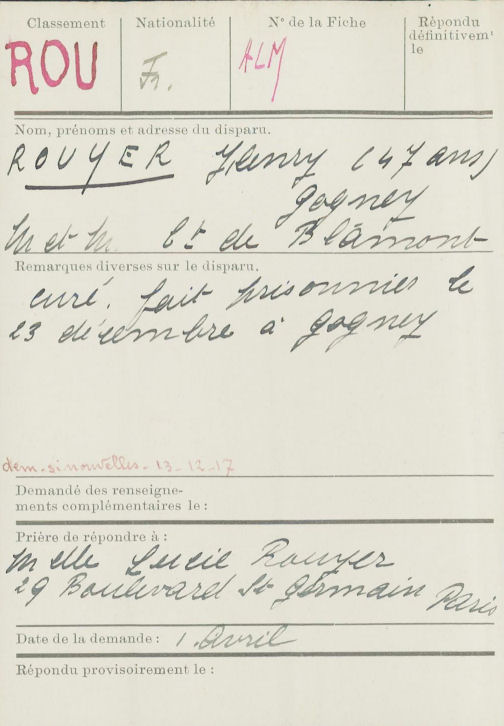 Classement
Nationalité
N° de la Fiche
Répondu
définitivemt
le
ROU
Fr.
ALM
Nom, prénoms et adresse du disparu.
ROUYER Henry (47 ans)
Gogney
M et M. Ct de Blâmont
Remarques diverses sur le disparu.
curé. fait prisonnier le
23 décembre à Gogney
dem. si nouvelles - 13-12-17
Demandé des renseigne-
ments complémentaires le :
Prière de répondre à :
Melle Lucie Rouyer
29 Boulevard St Germain Paris
Date de la demande : 1. Avril
Répondu provisoirement le :